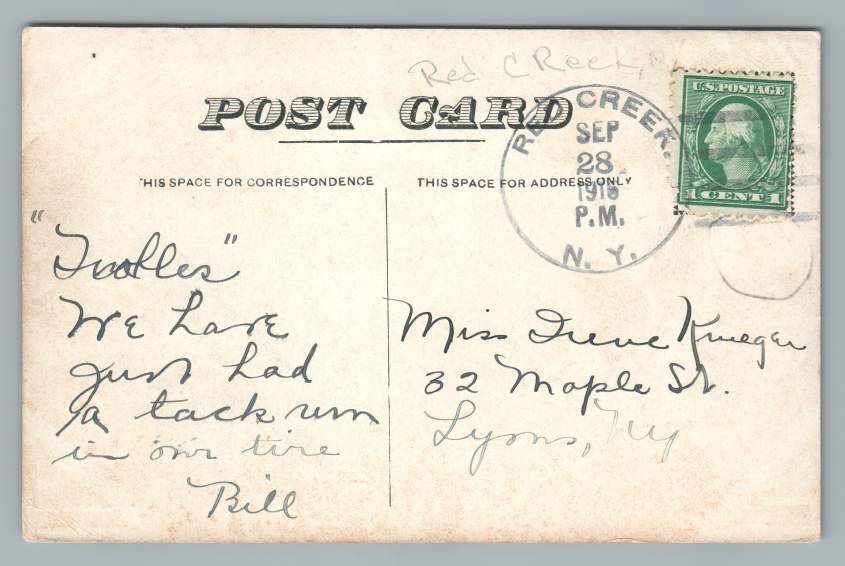 Red Creek,
POST CARD
RED CREEK.
SEP
28
P.M.
N. Y.
U.S. POSTAGE
1 CENT 1
HIS SPACE FOR CORRESPONDENCE
THIS SPACE FOR ADDRESS ONLY
We have
just had
a tack run
in our tire
Bill
Miss Irene Krueger
32 Maple St.
Lyons, NY